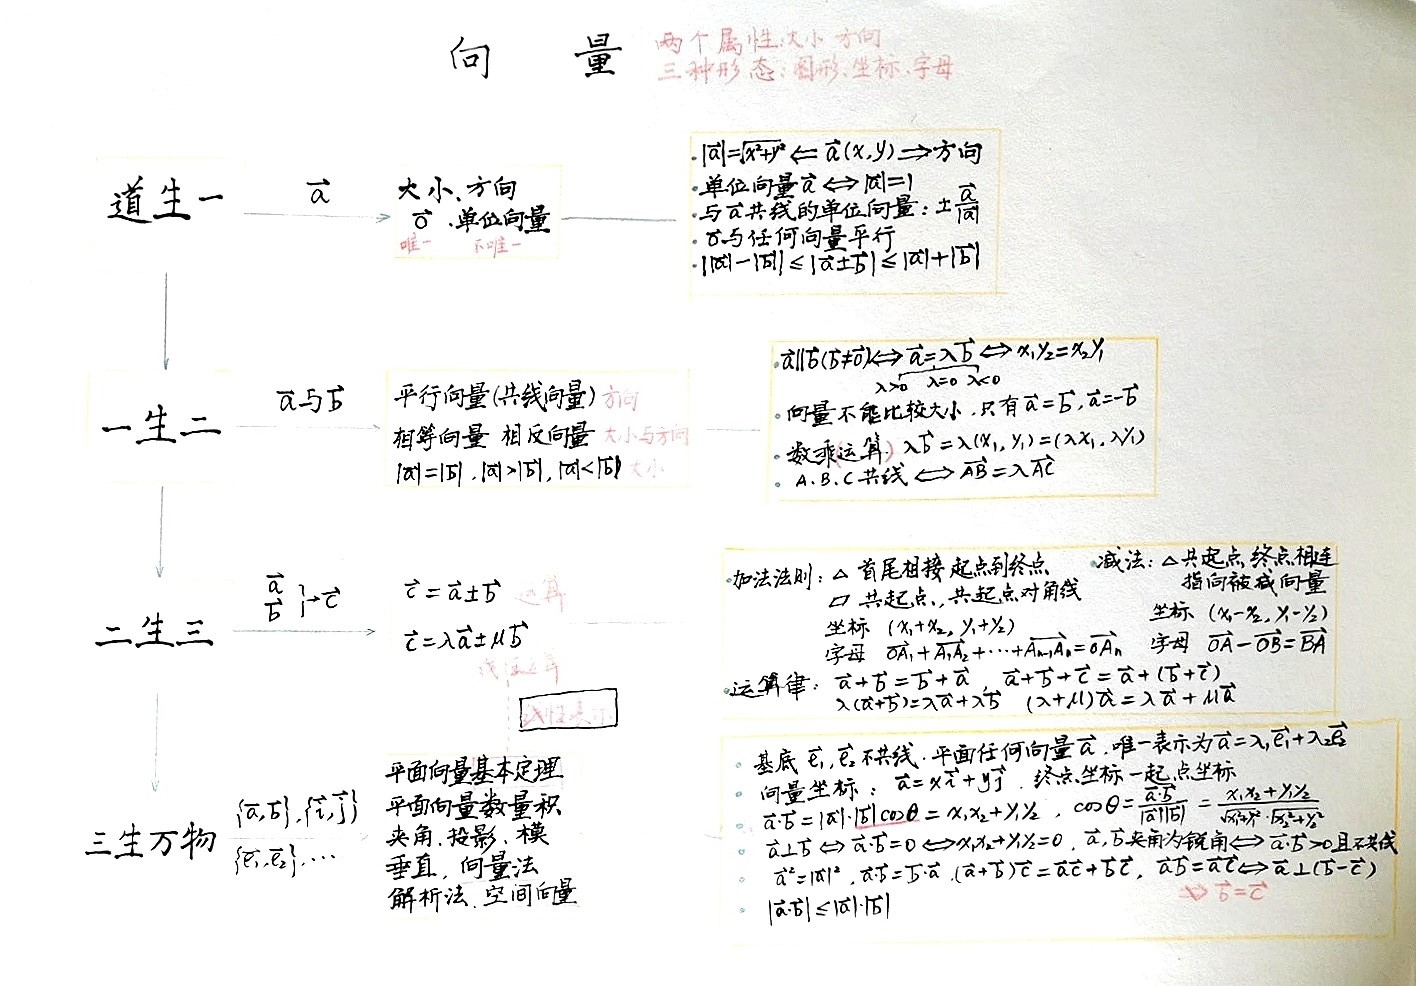 向 量
两个属性:大小 方向
三种形态:图形、坐标、字母
道生一
a⃗
大小、方向
0⃗ 、单位向量
唯一 不唯一
·|a⃗|=√(x²+y²) ⇐ a⃗(x,y) ⇒ 方向
·单位向量a⃗ ⇔ |a⃗|=1
·与a⃗共线的单位向量: ± a⃗/|a⃗|
·0⃗与任何向量平行
·||a⃗|-|b⃗|| ≤ |a⃗±b⃗| ≤ |a⃗|+|b⃗|
一生二
a⃗与b⃗
平行向量(共线向量) 方向
相等向量 相反向量 大小与方向
|a⃗|=|b⃗|, |a⃗|>|b⃗|, |a⃗|<|b⃗| 大小
·a⃗∥b⃗(b⃗≠0⃗) ⇔ a⃗=λb⃗ ⇔ x₁y₂=x₂y₁
λ>0 λ=0 λ<0
·向量不能比较大小, 只有a⃗=b⃗, a⃗=-b⃗
·数乘运算 λb⃗=λ(x₁,y₁)=(λx₁,λy₁)
·A、B、C共线 ⇔ AB⃗=λAC⃗
二生三
a⃗
b⃗ }→c⃗
c⃗=a⃗±b⃗ 运算
c⃗=λa⃗±μb⃗
线性运算
线性表示
·加法法则: △ 首尾相接 起点到终点
▱ 共起点, 共起点对角线
坐标 (x₁+x₂, y₁+y₂)
字母 OA₁⃗+A₁A₂⃗+⋯+Aₙ₋₁Aₙ⃗=OAₙ⃗
·减法: △共起点 终点相连
指向被减向量
坐标 (x₁-x₂, y₁-y₂)
字母 OA⃗-OB⃗=BA⃗
·运算律: a⃗+b⃗=b⃗+a⃗, a⃗+b⃗+c⃗=a⃗+(b⃗+c⃗)
λ(a⃗+b⃗)=λa⃗+λb⃗ (λ+μ)a⃗=λa⃗+μa⃗
三生万物
{a⃗,b⃗},{i⃗,j⃗}
{e₁⃗,e₂⃗},⋯
平面向量基本定理
平面向量数量积
夹角、投影、模
垂直, 向量法
解析法、空间向量
·基底 e₁⃗,e₂⃗不共线、平面任何向量a⃗、唯一表示为a⃗=λ₁e₁⃗+λ₂e₂⃗
·向量坐标: a⃗=xi⃗+yj⃗, 终点坐标-起点坐标
·a⃗·b⃗=|a⃗|·|b⃗|cosθ=x₁x₂+y₁y₂, cosθ=a⃗·b⃗/|a⃗||b⃗|=(x₁x₂+y₁y₂)/(√(x₁²+y₁²)·√(x₂²+y₂²))
·a⃗⊥b⃗ ⇔ a⃗·b⃗=0 ⇔ x₁x₂+y₁y₂=0, a⃗,b⃗夹角为锐角⇔a⃗·b⃗>0且不共线
·a⃗²=|a⃗|², a⃗·b⃗=b⃗·a⃗, (a⃗+b⃗)c⃗=a⃗c⃗+b⃗c⃗, a⃗b⃗=a⃗c⃗⇔a⃗⊥(b⃗-c⃗)
⇎ b⃗=c⃗
·|a⃗·b⃗|≤|a⃗|·|b⃗|